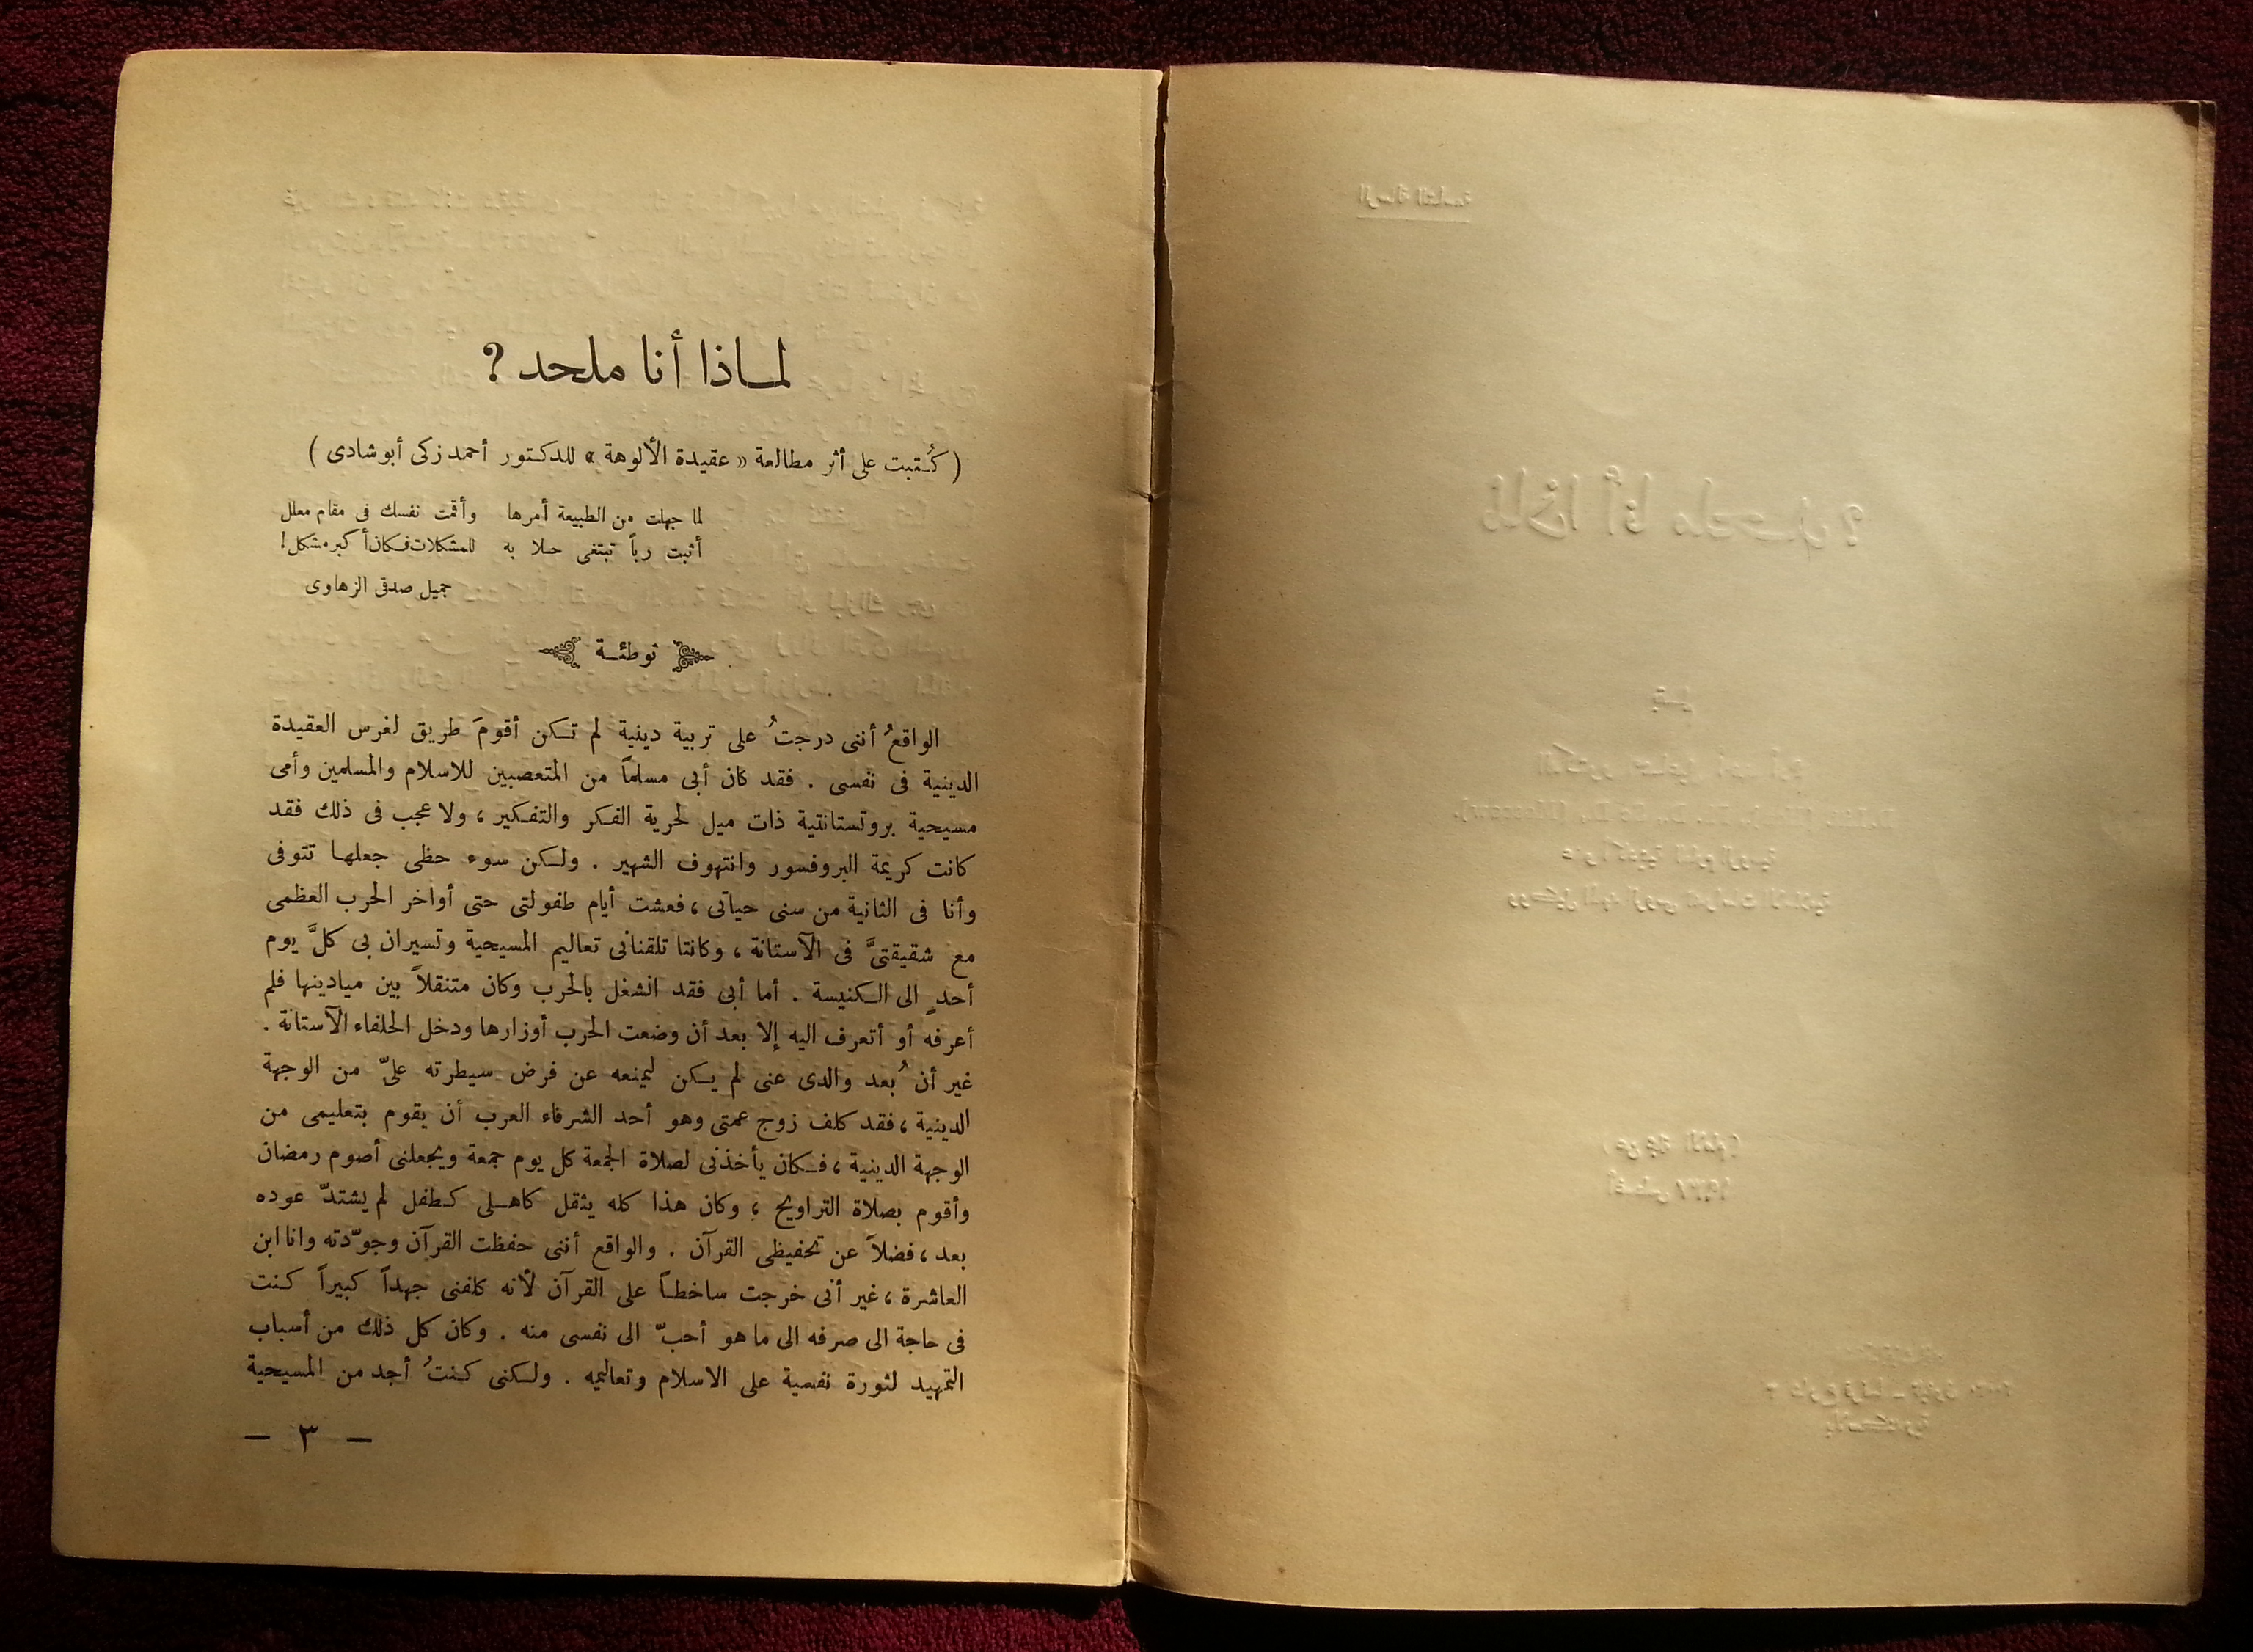 لمـاذا أنا ملحد ?
( كُـتبت على أثر مطالعة « عقيدة الألوهة » للدكتور أحمد زكى أبو شادى )
لما جهلت من الطبيعة أمرها وأقمت نفسك فى مقام معلل
أثبت رباً تبتغى حلا به للمشكلات فكان أكبر مشكل !
جميل صدقى الزهاوى
توطئـة
الواقعُ أننى درجتُ على تربية دينية لم تكن أقومَ طريق لغرس العقيدة
الدينية فى نفسى . فقد كان أبى مسلماً من المتعصبين للاسلام والمسلمين وأمى
مسيحية بروتستانتية ذات ميل لحرية الفكر والتفكير ، ولا عجب فى ذلك فقد
كانت كريمة البروفسور وانتهوف الشهير . ولكن سوء حظى جعلها تتوفى
وأنا فى الثانية من سنى حياتى ، فعشت أيام طفولتى حتى أواخر الحرب العظمى
مع شقيقتىَّ فى الآستانة ، وكانتا تلقنانى تعاليم المسيحية وتسيران بى كلَّ يوم
أحدٍ الى الكنيسة . أما أبى فقد انشغل بالحرب وكان متنقلاً بين ميادينها فلم
أعرفه أو أتعرف اليه إلا بعد أن وضعت الحرب أوزارها ودخل الحلفاء الآستانة .
غير أن بُعد والدى عنى لم يكن ليمنعه عن فرض سيطرته علىّ من الوجهة
الدينية ، فقد كلف زوج عمتى وهو أحد الشرفاء العرب أن يقوم بتعليمى من
الوجهة الدينية ، فكان يأخذنى لصلاة الجمعة كل يوم جمعة ويجعلنى أصوم رمضان
وأقوم بصلاة التراويح ؛ وكان هذا كله يثقل كاهلى كطفل لم يشتدّ عوده
بعد ، فضلاً عن تحفيظى القرآن . والواقع أننى حفظت القرآن وجوّدته وانا ابن
العاشرة ، غير أنى خرجت ساخطاً على القرآن لأنه كلفنى جهداً كبيراً كنت
فى حاجة الى صرفه الى ما هو أحبّ الى نفسى منه . وكان كل ذلك من أسباب
التمهيد لثورة نفسية على الاسلام وتعاليمه . ولكنى كنتُ أجد من المسيحية
— ٣ —